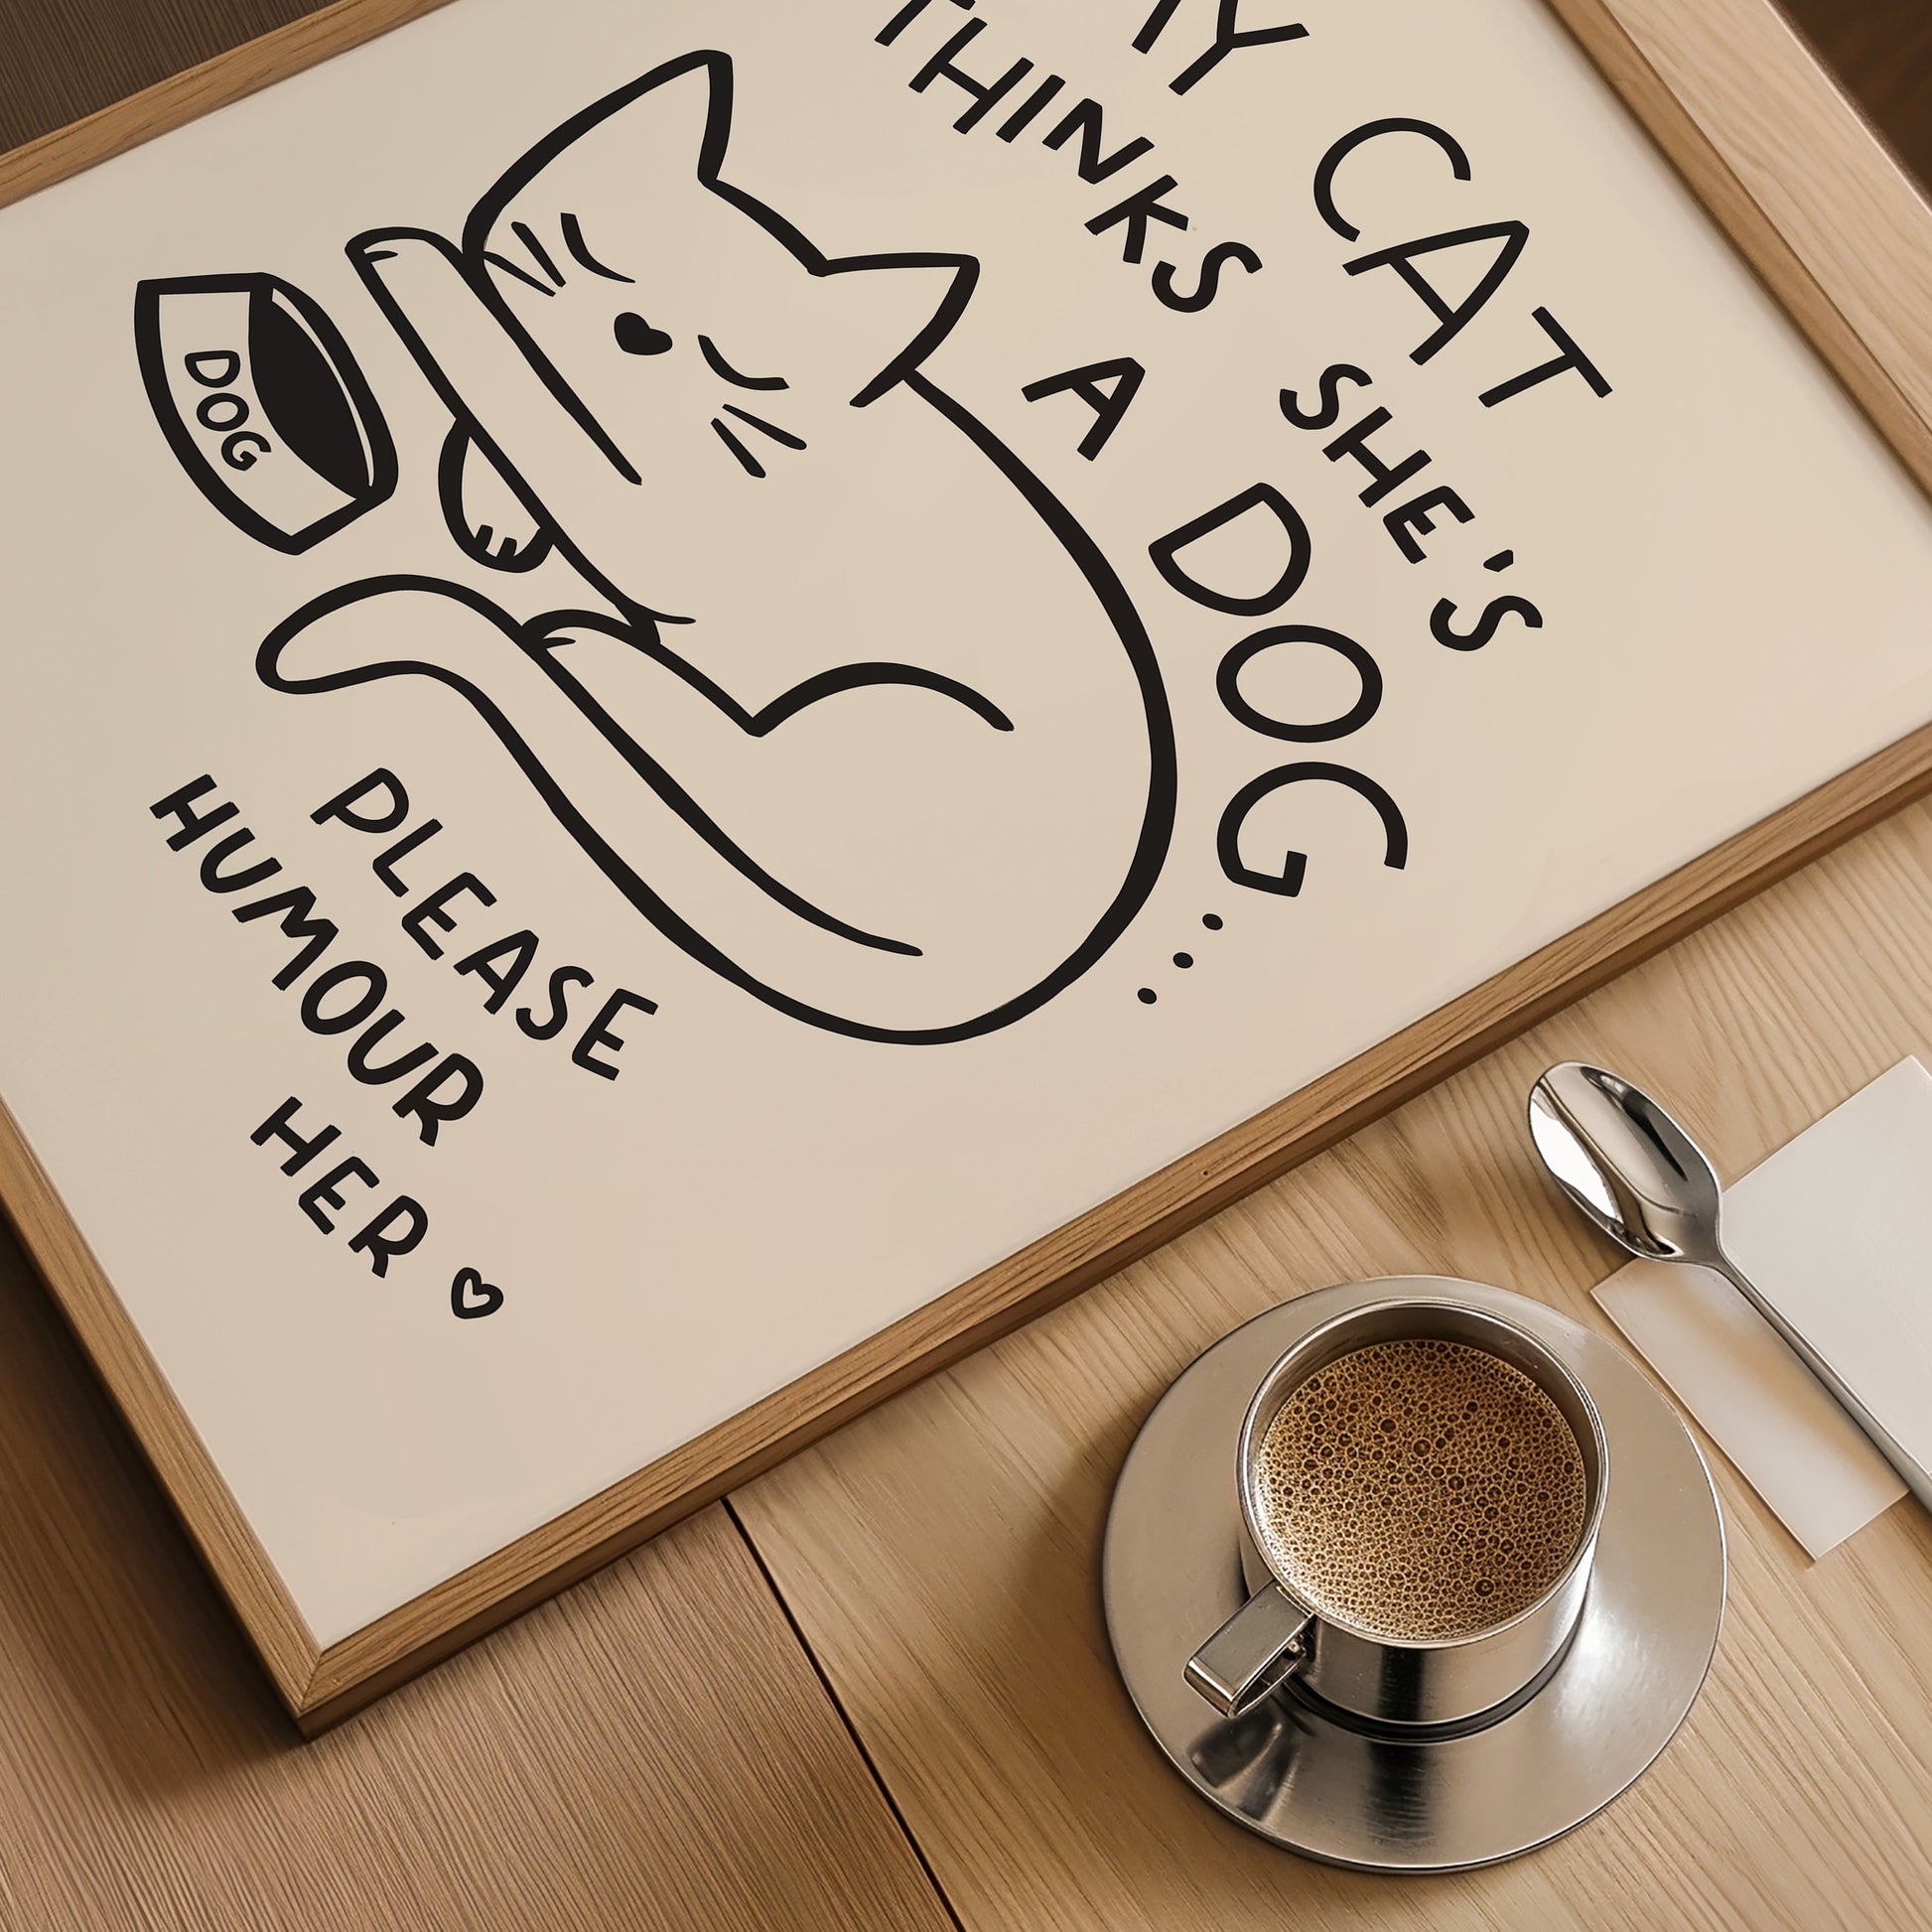 MY CAT
THINKS SHE'S
A DOG...
DOG
PLEASE
HUMOUR
HER ♡